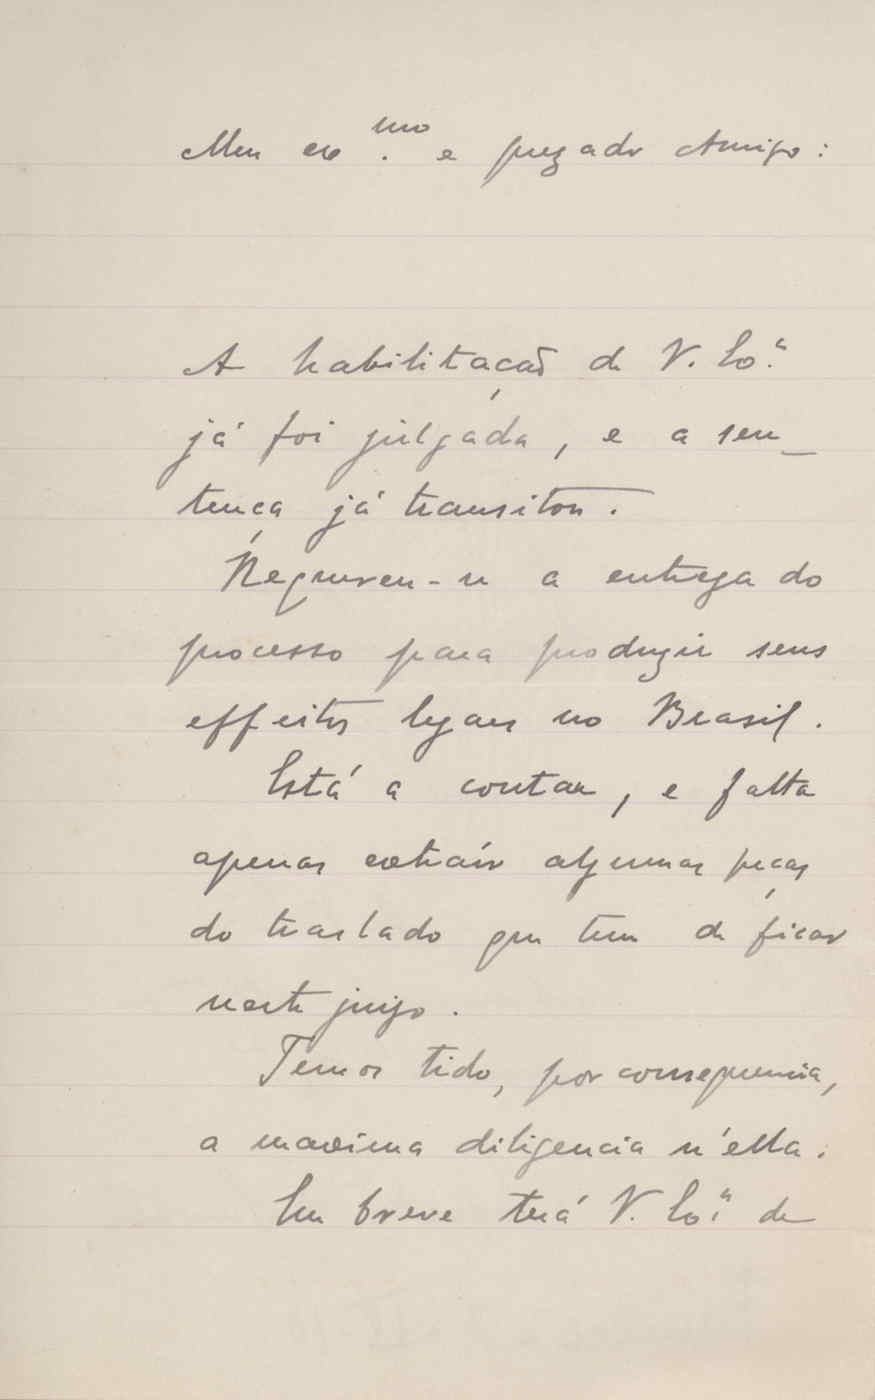 Meu ex.mo e prezado Amigo:
A habilitação de V. Ex.a
já foi julgada, e a sen-
tença já transitou.
Requereu-se a entrega do
processo para produzir seus
effeitos legaes no Brasil.
Está a contar, e falta
apenas extraír algumas peças
do traslado que tem de ficar
neste juizo.
Temos tido, por consequencia,
a maxima diligencia n'ella.
Em breve terá V. Ex.a de